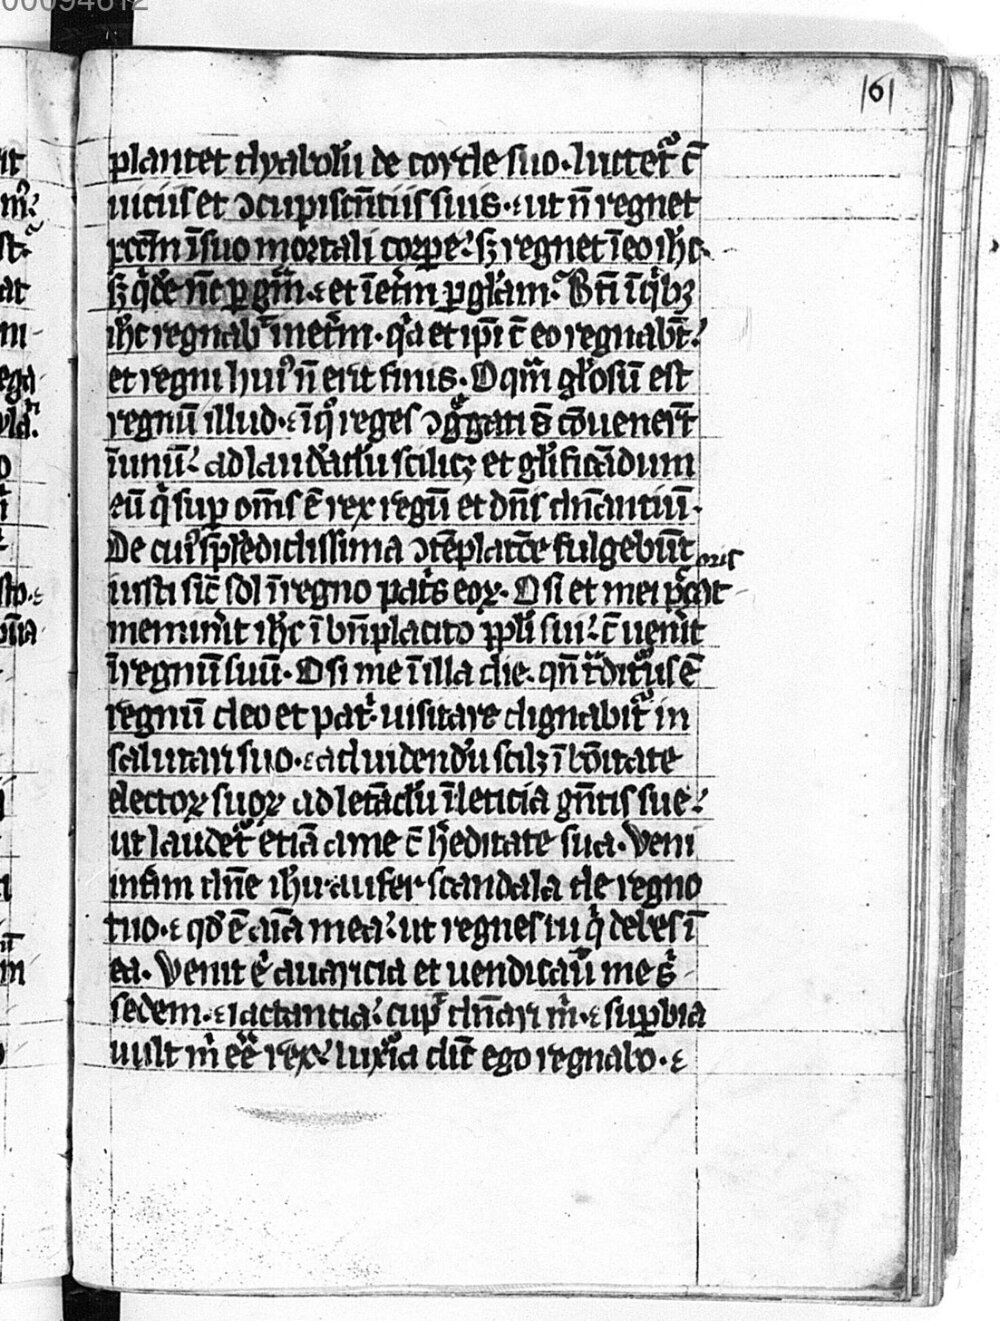 00094612
161
plantet dyabolu̅ de corde suo · luctet᷑ c̅
uiciis et ↄcupiscn̅tiis suis · ⁊ ut n̅ regnet
pcc̅m i̅ suo mortali corpe · sꝫ regnet i̅ eo ih̅c ·
sꝫ q̇de̅ nc̅ ꝑ gr̅am · ⁊ et i̅ et̅m ꝑ gl̅am · Bt̅i i̅ q̇bꝫ
ih̅c regnab̅ in et̅m · q̇a et ip̅i c̅ eo regnabt̅ ·
et regni hui᷒ n̅ erit finis · O qm̅ gl̅osu̅ est
regnu̅ illud · ⁊ i̅ q̊ reges ↄg̊gati s̅ co̅uener̅t
i̅ unu̅ · ad laudadu̅ scilicꝫ et gl̅ifica̅dum
eu̅ q̇ sup om̅s e̅ rex regu̅ et dn̅s dn̅antiu̅ ·
De cui᷒ sple̅didissima ↄte̅plac̅oe fulgebu̅t
iusti sic̅ sol i̅ regno paṫs eoꝝ · O si et mei p̅ccat oris
meminit ih̅c i̅ bn̅placito ppl̅i sui · c̅ uenit
i̅ regnu̅ suu̅ · O si me i̅ illa die · qn̅ t̅ditur᷒ e̅
regnu̅ deo et paṫ · uisitare dignabit᷑ in
salutari suo · ⁊ ad uidendu̅ scilꝫ i̅ bo̅itate
electoꝝ suoꝝ ad leta̅du̅ i̅ leticia gn̅tis sue ·
ut laudet᷑ etia̅ a me c̅ h̅editate sua · Veni
int̅im dn̅e ih̅u · aufer scandala de regno
tuo · ⁊ qd̅ e̅ ai̅a mea · ut regnes tu q̇ debes i̅
ea · Venit e̅ auaricia et uendicau̅ me s̅
sedem · ⁊ iactantia · cup̅ dn̅ari m̅ · ⁊ supbia
uult m̅ ee̅ rex · luxi̅a dic̅ ego regnabo · ⁊